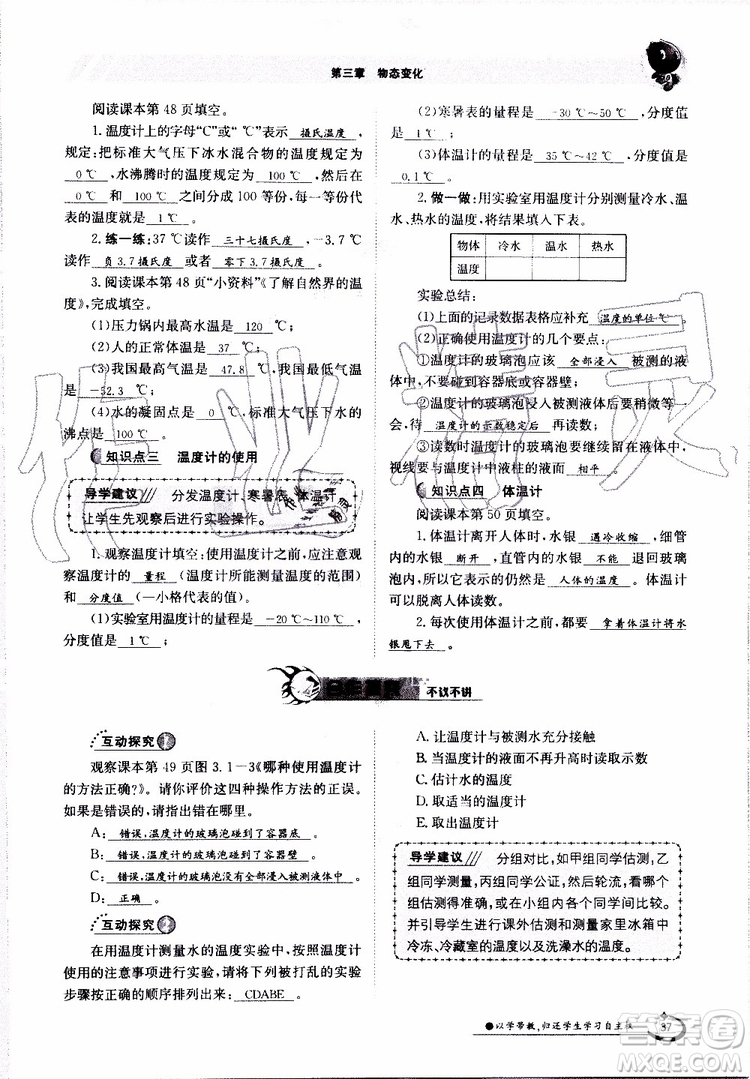 第三章 物态变化
阅读课本第48页填空。
1.温度计上的字母“C”或“℃”表示 摄氏温度 ,
规定:把标准大气压下冰水混合物的温度规定为
0℃ ,水沸腾时的温度规定为 100℃ ,然后在
0℃ 和 100℃ 之间分成100等份,每一等份代
表的温度就是 1℃ 。
2.练一练:37℃读作 三十七摄氏度 ,-3.7℃
读作 负3.7摄氏度 或者 零下3.7摄氏度 。
3.阅读课本第48页“小资料”《了解自然界的温
度》,完成填空。
(1)压力锅内最高水温是 120 ℃;
(2)人的正常体温是 37 ℃;
(3)我国最高气温是 47.8 ℃,我国最低气温
是 -52.3 ℃;
(4)水的凝固点是 0 ℃,标准大气压下水的
沸点是 100℃ 。
知识点三 温度计的使用
导学建议 分发温度计、寒暑表、体温计
让学生先观察后进行实验操作。
1.观察温度计填空:使用温度计之前,应注意观
察温度计的 量程 (温度计所能测量温度的范围)
和 分度值 (一小格代表的值)。
(1)实验室用温度计的量程是 -20℃~110℃ ,
分度值是 1℃ ;
(2)寒暑表的量程是 -30℃~50℃ ,分度值
是 1℃ ;
(3)体温计的量程是 35℃~42℃ ,分度值是
0.1℃ 。
2.做一做:用实验室用温度计分别测量冷水、温
水、热水的温度,将结果填入下表。
物体 冷水 温水 热水
温度
实验总结:
(1)上面的记录数据表格应补充 温度的单位℃
(2)正确使用温度计的几个要点:
①温度计的玻璃泡应该 全部浸入 被测的液
体中,不要碰到容器底或容器壁;
②温度计的玻璃泡浸入被测液体后要稍等一
会,待 温度计的示数稳定后 再读数;
③读数时温度计的玻璃泡要继续留在液体中,
视线要与温度计中液柱的液面 相平 。
知识点四 体温计
阅读课本第50页填空。
1.体温计离开人体时,水银 遇冷收缩 ,细管
内的水银 断开 ,直管内的水银 不能 退回玻璃
泡内,所以它表示的仍然是 人体的温度 。体温计
可以脱离人体读数。
2.每次使用体温计之前,都要 拿着体温计将水
银甩下去 。
不议不讲
互动探究1
观察课本第49页图3.1-3《哪种使用温度计
的方法正确?》。请你评价这四种操作方法的正误。
如果是错误的,请你指出错在哪里。
A: 错误,温度计的玻璃泡碰到了容器底。
B: 错误,温度计的玻璃泡碰到了容器壁。
C: 错误,温度计的玻璃泡没有全部浸入被测液体中。
D: 正确。
互动探究2
在用温度计测量水的温度中,按照温度计使用
使用的注意事项进行实验,请将下列被打乱的实验
步骤按正确的顺序排列出来: CDABE 。
A.让温度计与被测水充分接触
B.当温度计的液面不再升高时读数
C.估计水的温度
D.取适当的温度计
E.取出温度计
导学建议 分组对比,如甲组同学估测,乙
组同学测量,丙组同学公证,然后轮流,看哪个
组估测的准,或在小组内各个同学间比较。
并引导学生进行课外估测和测量家里冰箱中
冷冻、冷藏室的温度以及洗澡水的温度。
以学带教,归还学生学习自主权
37
作业精灵
答案圈
MXQE.COM